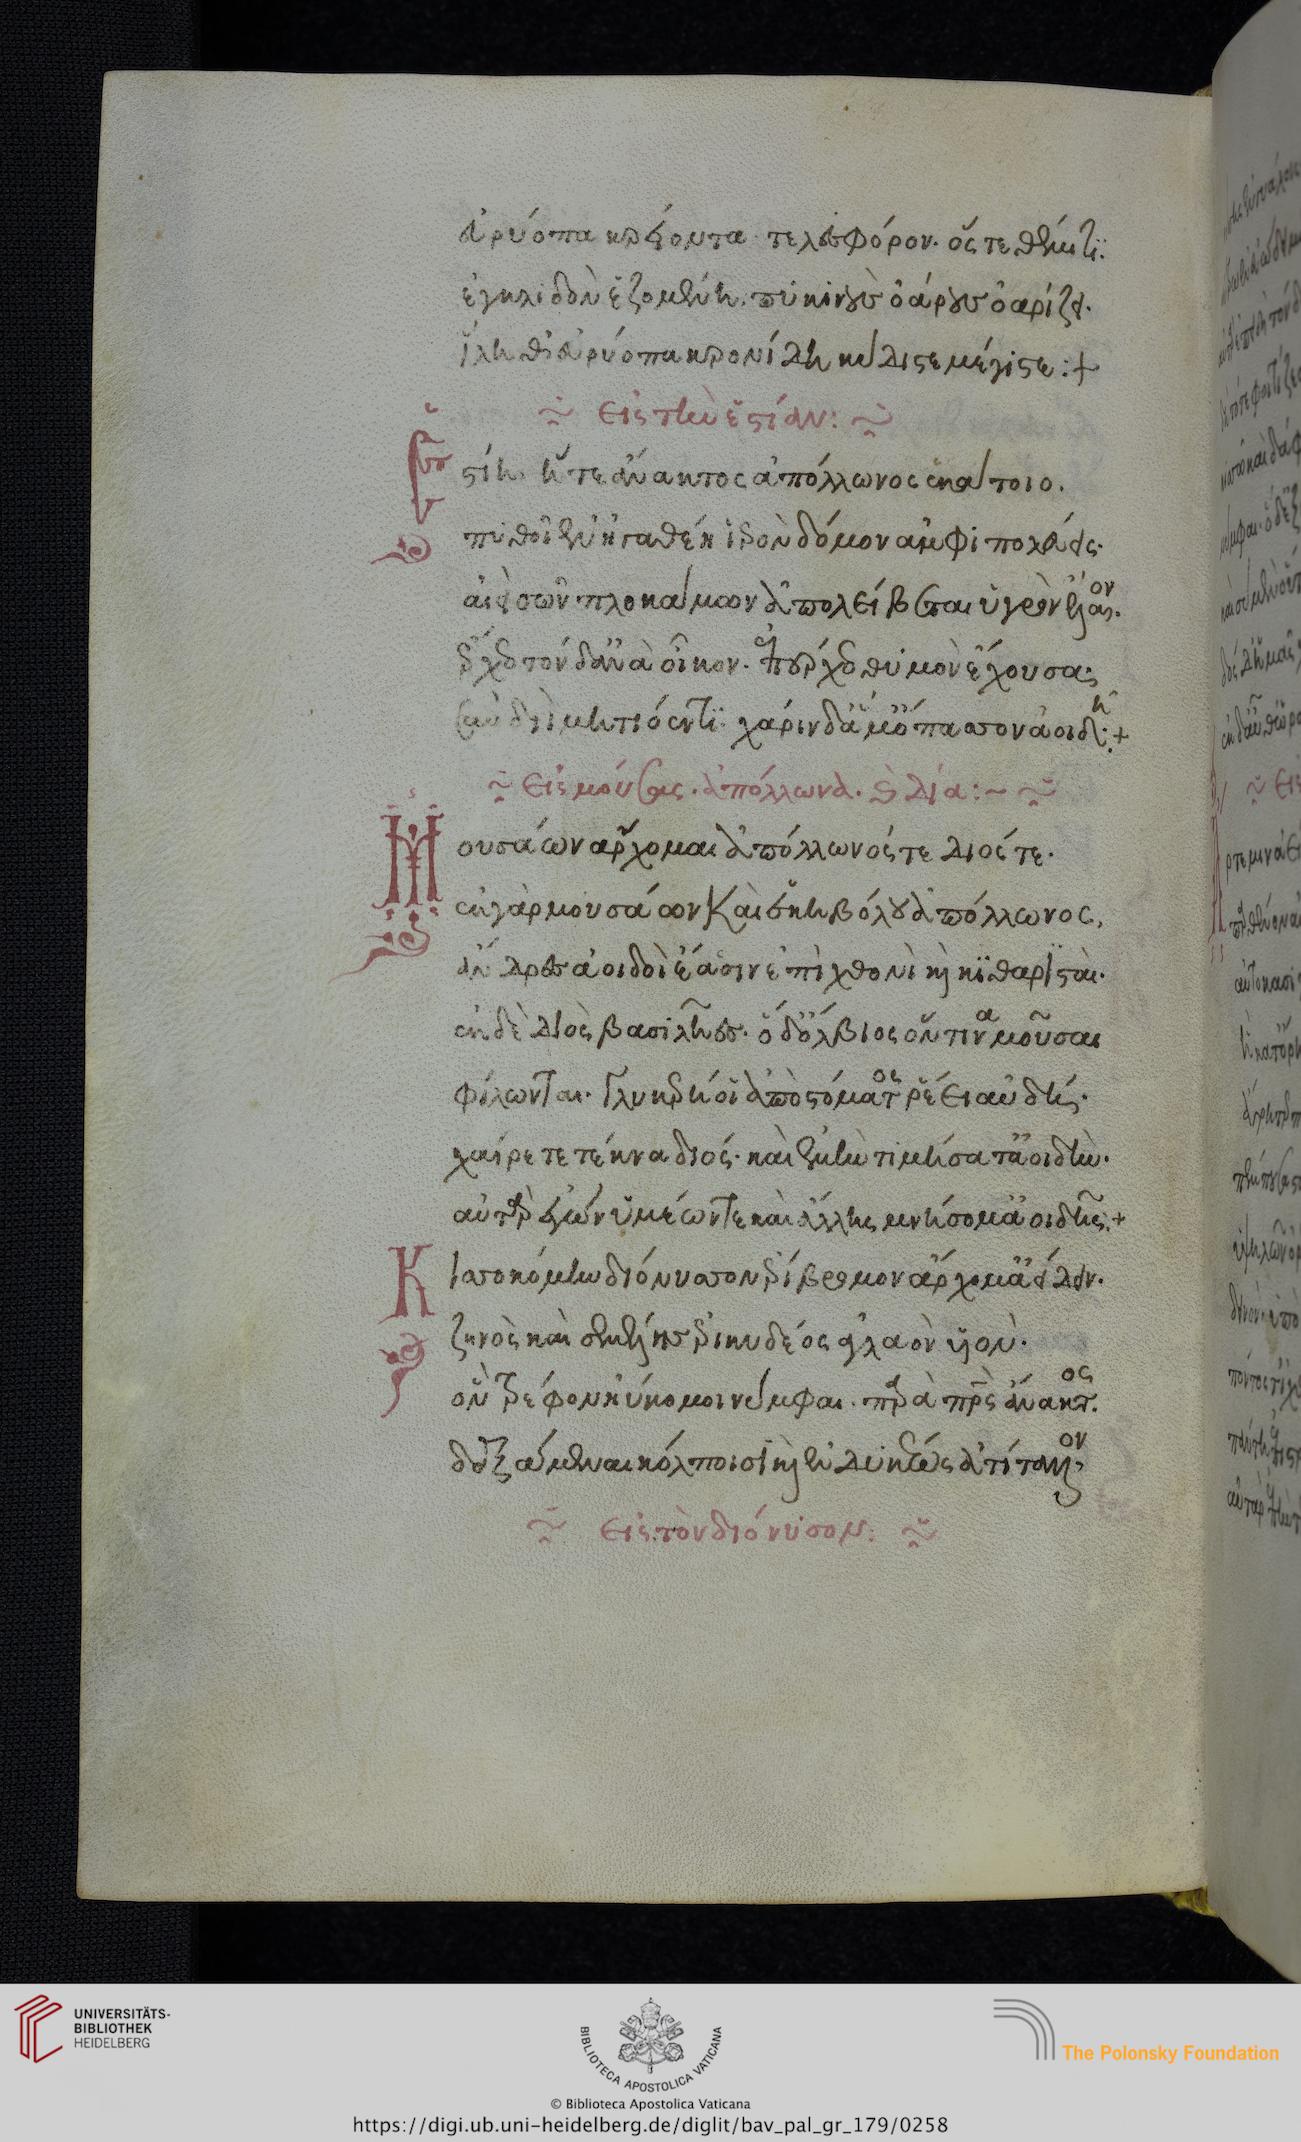 εὐρύοπα κρείοντα τελεσφόρον. ὅς τε θέμιτι·
ἐγκλιδὸν ἑζομένη. πυκινοὺς ὀάρους ὀαρίζει.
ἵληθ' εὐρύοπα κρονίδη κύδιστε μέγιστε :+
Εἰς τὴν ἑστίαν:
Ἑστίη ἥτε ἄνακτος ἀπόλλωνος ἑκάτοιο.
πυθοῖ ἐν ἠγαθέῃ ἱερὸν δόμον ἀμφιπολεύεις.
αἰεὶ σῶν πλοκάμων ἀπολείβεται ὑγρὸν ἔλαιον.
ἔρχεο τόνδ' ἀνὰ οἶκον. ἐπέρχεο θυμὸν ἔχουσα·
σὺν διὶ μητιόεντι· χάριν δ' ἅμ' ὄπασσον ἀοιδῇ:+
Εἰς μούσας. ἀπόλλωνα. καὶ Δία:
Μουσάων ἄρχομαι ἀπόλλωνός τε Διός τε.
ἐκ γὰρ μουσάων καὶ ἑκηβόλου ἀπόλλωνος,
ἄνδρες ἀοιδοὶ ἔασιν ἐπὶ χθονὶ καὶ κιθαρισταί.
ἐκ δὲ Διὸς βασιλῆες. ὁ δ' ὄλβιος ὅντινα μοῦσαι
φίλωνται. γλυκερή οἱ ἀπὸ στόματος ῥέει αὐδή.
χαίρετε τέκνα διός. καὶ ἐμὴν τιμήσατ' ἀοιδήν.
αὐτὰρ ἐγὼν ὑμέων τε καὶ ἄλλης μνήσομ' ἀοιδῆς:+
Κισσοκόμην διόνυσσον ἐρίβρομον ἄρχομ' ἀείδειν.
ζηνὸς καὶ σεμέλης ἐρικυδέος ἀγλαὸν υἱόν.
ὃν τρέφον ἠΰκομοι νύμφαι. παρὰ πατρὸς ἄνακτος.
δεξάμεναι κόλποισι καὶ ἐνδυκέως ἀτίταλλον
Εἰς τὸν διόνυσον:
UNIVERSITÄTS-
BIBLIOTHEK
HEIDELBERG
BIBLIOTECA APOSTOLICA VATICANA
The Polonsky Foundation
© Biblioteca Apostolica Vaticana
https://digi.ub.uni-heidelberg.de/diglit/bav_pal_gr_179/0258